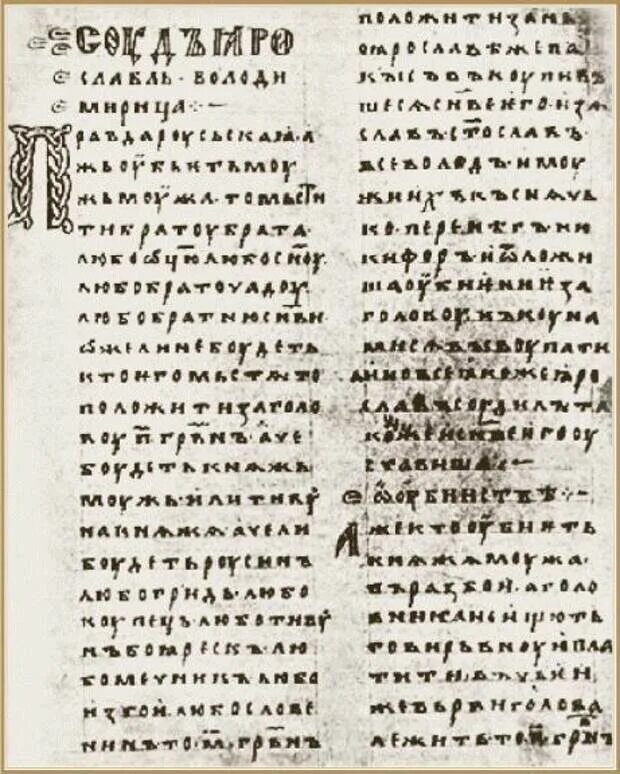 СОУДЪ ꙖРО
СЛАВЛЬ · ВОЛОДИ
МИРИЦА ⁘ —
Правдароусьскаꙗ · а
жьоубьитьмоу
жьмоужа · томьсти
тибратоубрата ·
любоѡц҃ю · любосн҃оу ·
любобратоучадоу ·
любобратнюсн҃ви
ѡжелинебоудеть
ктоѥгомьстѧто
положитизаголо
воу · п҃ · грв҃нъ · аче
боудетькнѧжь
моужь · илитиву
накнѧжа · ачели
боудетьроусинъ
любогридь · любо
коупець · люботиву
нъбоѧрескъ · лю
бомечникълюбо
изгои · любослове
нинъто · м҃ · грв҃нъ
положитизань
поꙗрославѣжепа
кысъвъкоупивъ
шесѧсн҃веѥго · изѧ
славъ · ст҃ославъ ·
всеволодъ · имоу
жиихъ · къснѧчь
ко · перенѣгъ · ни
кифоръ · иѿложи
шаоубиѥниѥза
головоу · нъкоуна
мисѧвыкоупати
аиновсеꙗкожеꙗро
славъсоудилъта
кожеисн҃веѥгооу
ставиша ⁘ —
Ооубииствѣ ⁘ —
Ажектооубиѥть
кнѧжамоужа ·
въразбои · аголо
вниканеищють
товирьвноуюпла
тити · въчьѥи
жевьрвиголова
лежить · то · п҃ · грв҃нъ